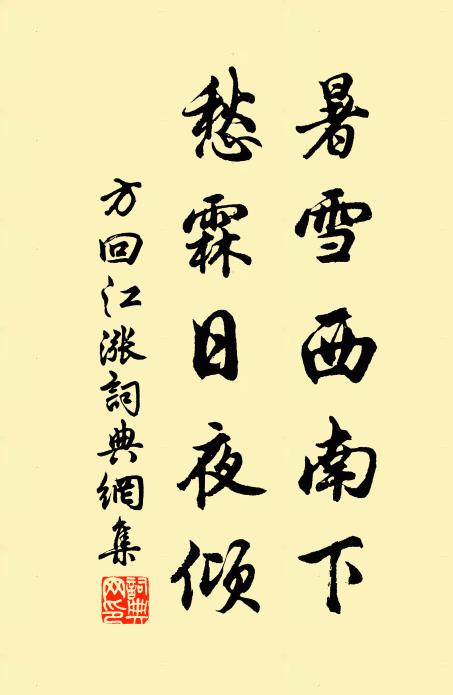 暑雪西南下
愁霖日夜倾
方回江漲詞典網集
詞典
网印